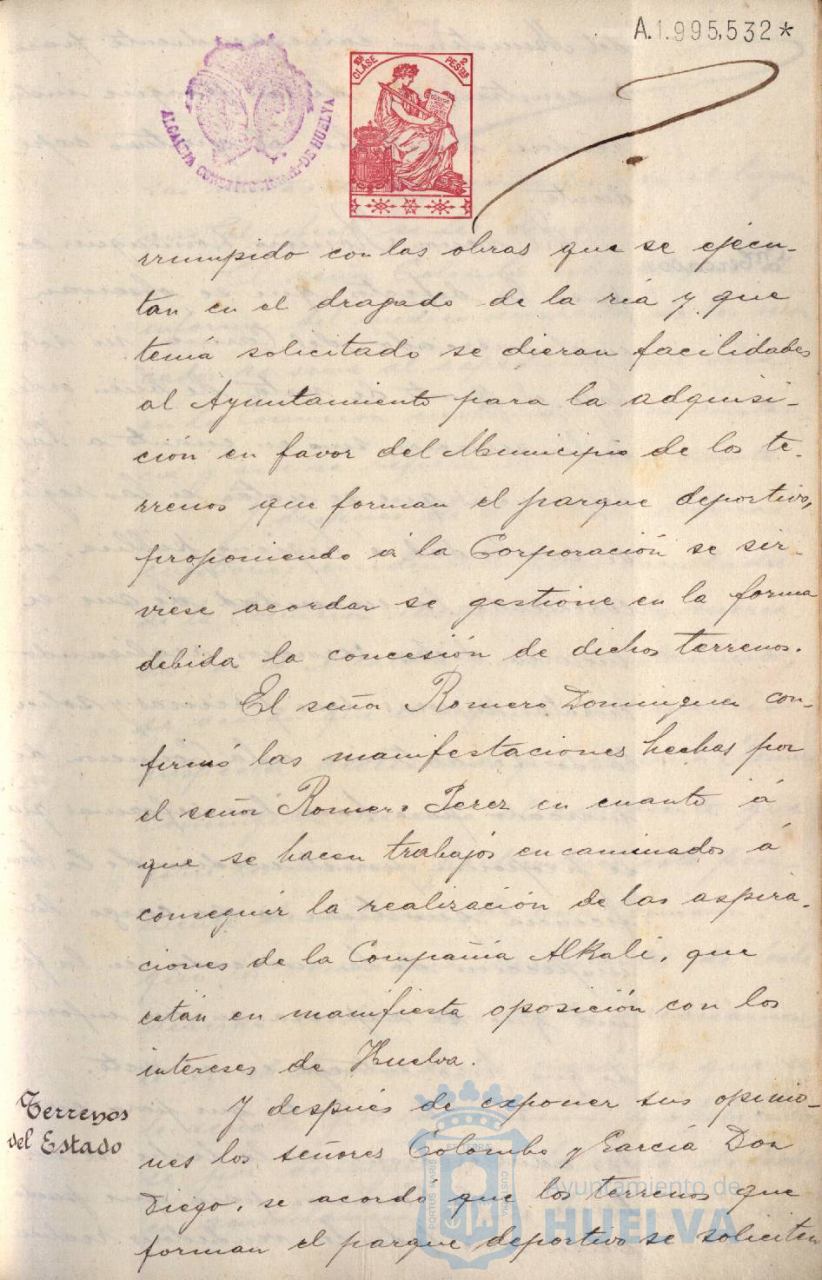 A.1.995,532*
1ª CLASE 2 PESTAS
ALCALDIA CONSTITUCIONAL DE HUELVA
rrumpido con las obras que se ejecu-
tan en el dragado de la ría y que
tenia solicitado se dieran facilidades
al Ayuntamiento para la adquisi-
ción en favor del Municipio de los te-
rrenos que forman el parque deportivo,
proponiendo á la Corporación se sir-
viese acordar se gestione en la forma
debida la concesión de dichos terrenos.
El señor Romero Dominguez con-
firmó las manifestaciones hechas por
el señor Romero Perez en cuanto á
que se hacen trabajos encaminados á
conseguir la realización de las aspira-
ciones de la Compañia Alkali, que
están en manifiesta oposición con los
intereses de Huelva.
Terrenos
del Estado
Y después de exponer sus opinio-
nes los señores Colombo y García Don
Diego, se acordó que los terrenos que
forman el parque deportivo se soliciten
Ayuntamiento de
HUELVA